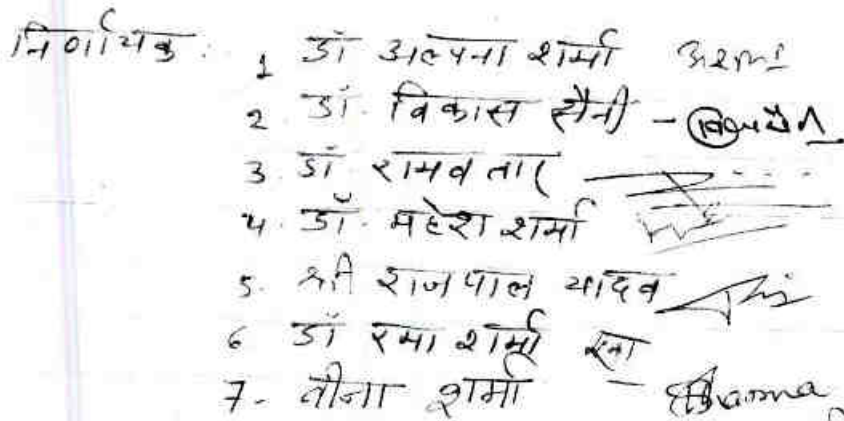 निर्णायक:
1 डॉ अल्पना शर्मा
2. डॉ. विकास सैनी -
3. डॉ रामवतार
4. डॉ. महेश शर्मा
5. श्री राजपाल यादव
6 डॉ रमा शर्मा रमा
7- वीना शर्मा - Sharma